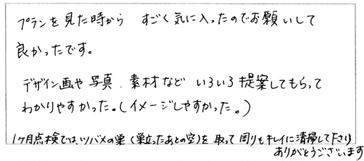 プランを見た時から すごく気に入ったのでお願いして
良かったです。
デザイン画や写真、素材など いろいろ提案してもらって
わかりやすかった。(イメージしやすかった。)
1ヶ月点検では、ツバメの巣(巣立ったあとの空)を取って周りもキレイに清掃して下さり
ありがとうございます